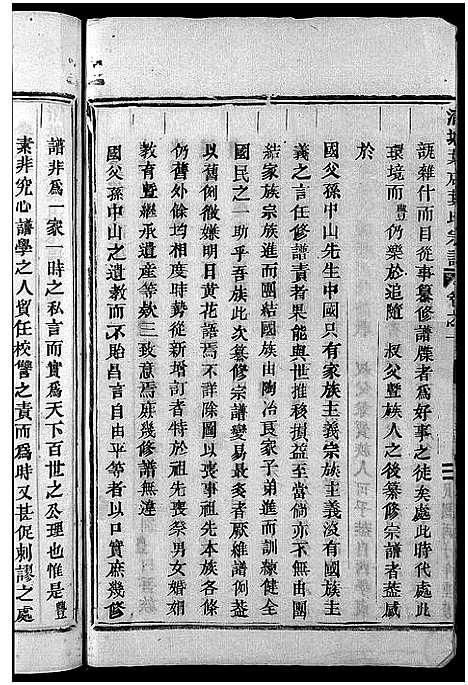 蕉城某氏宗譜 卷之一
試雜什而目從事纂修譜牒者為好事之徒矣處此時代處此
環境而豐仍樂於追隨 叔父暨族人之後纂修宗譜者蓋感
於
國父孫中山先生中國只有家族主義宗族主義沒有國族主
義之言任修譜責者果能與世推移損益至當倘亦不無由團
結家族宗族進而團結國族由陶冶良家子弟進而訓練健全
國民之一助乎吾族此次纂修宗譜變易最多者厥維譜例蓋
以舊例微嫌明日黃花語焉不詳除圖以喪事祖先本族各條
仍舊外餘均相從新增訂者特於祖先喪祭男女婚姻
教育暨繼承遺產等數三致意焉庶幾修譜無違
國父孫中山之遺教而不貽昌言自由平等者以口實庶幾修
譜非為一家一時之私言而實為天下百世之公理也惟是豐
素非究心譜學之人貿任校讐之責而為時又甚促剌謬之處